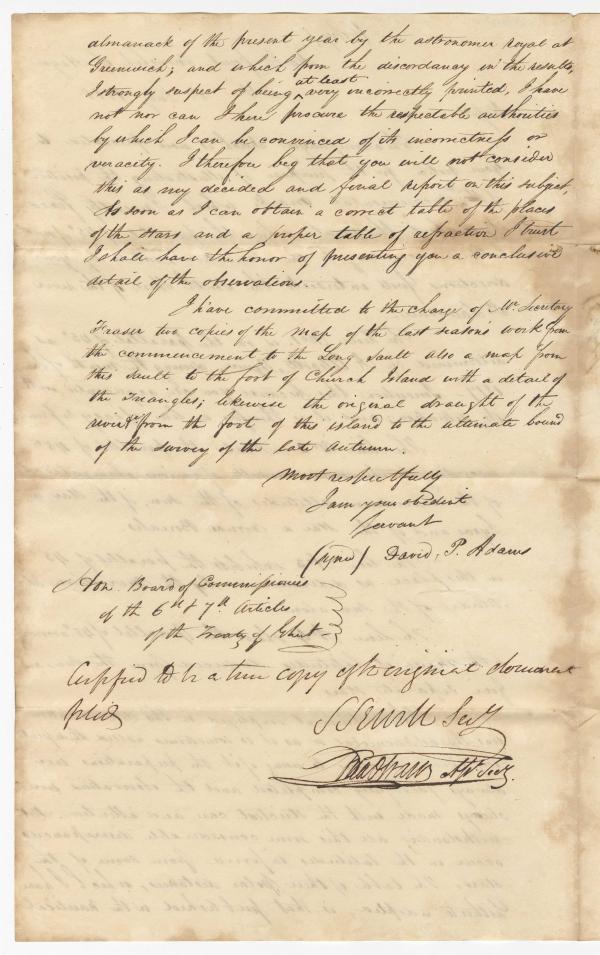 almanack of the present year by the astronomer royal at
Greenwich; and which from the discordancy in the results,
I strongly suspect of being at least very incorrectly printed, I have
not nor can I here procure the respectable authorities
by which I can be convinced of its incorrectness or
veracity. I therefore beg that you will not consider
this as my decided and final report on this subject,
As soon as I can obtain a correct table of the places
of the stars and a proper table of refraction I trust
I shall have the honor of presenting you a conclusive
detail of the observations.
I have committed to the charge of Mr. Secretary
Fraser two copies of the map of the last seasons work from
the commencement to the Long Sault also a map from
this Sault to the foot of Church Island with a detail of
the triangles; likewise the original draught of the
river &c from the foot of this island to the ultimate bound
of the survey of the late Autumn.
Most respectfully
I am your obedient
Servant
(signed) David, P. Adams
Hon. Board of Commissioners
of the 6th & 7th Articles
of the Treaty of Ghent
Certified to be a true copy of the original document
filed
S Sewall Secy
Secy.